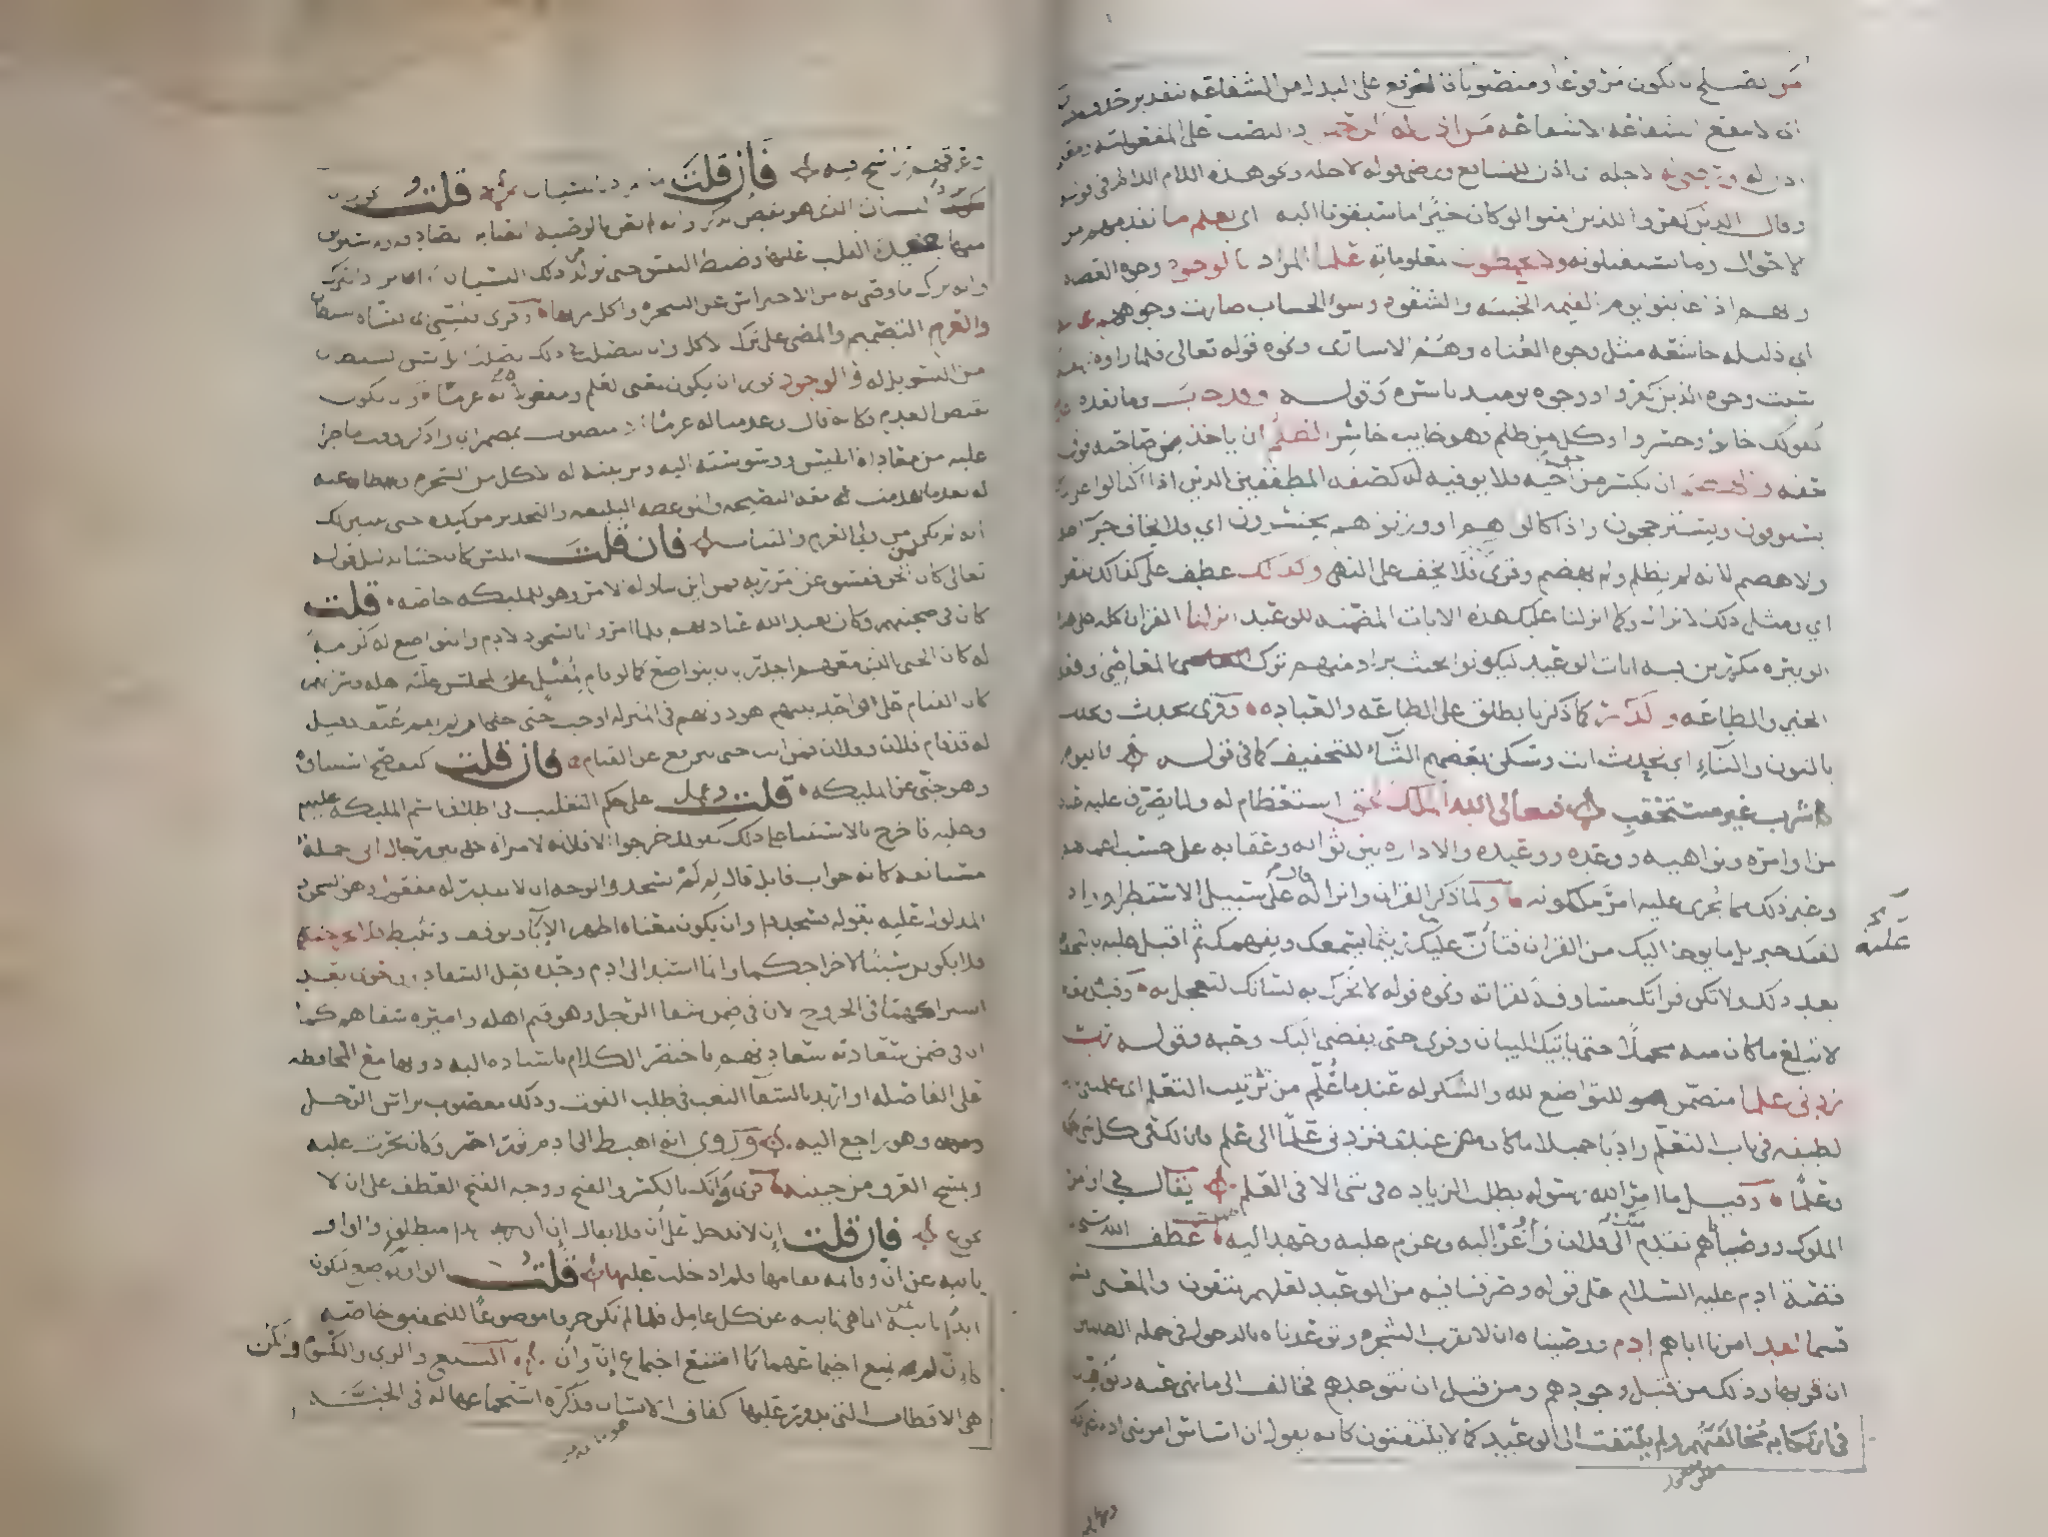 من يصلح ان يكون مرفوعا ومنصوبا فالرفع على البدل من الشفاعة بتقدير حذف
اي لا تنفع الشفاعة الا شفاعة من اذن له الرحمن والنصب على المفعولية ومعنى
اذن له ورضي له لاجله اي اذن للشافع ورضي قوله لاجله ونحو هذه اللام اللام في قوله
وقال الذين كفروا للذين امنوا لو كان خيرا ما سبقونا اليه اي يعلم ما تقدمهم من
الاحوال وما يستقبلونه ولا يحيطون بمعلوماته علما المراد بالوجوه وجوه العصاة
وانهم اذا عاينوا يوم القيمة الخيبة والشقوة وسوء الحساب صارت وجوههم
اي ذليلة خاشعة مثل وجوه العناة وهم الاسارى ونحوه قوله تعالى فلما راوه زلفة
سيئت وجوه الذين كفروا ووجوه يومئذ باسرة وقوله وقد خاب وما بعده
كقولك خابوا وخسروا وكل من ظلم فهو خايب خاسر الظلم ان ياخذ من صاحبه فوق
حقه والهضم ان يكسر من حق اخيه فلا يوفيه له كصفة المطففين الذين اذا اكتالوا على
يستوفون ويسترجحون واذا كالوهم او وزنوهم يخسرون اي فلا يخاف جزاء
ولا هضم لانه لم يظلم ولم يهضم وقرئ فلا يخف على النهي وكذلك عطف على كذلك نقص
اي ومثل ذلك الانزال وكما انزلنا عليك هذه الايات المضمنة للوعيد انزلنا القران كله على هذه
الوتيرة مكررين فيه ايات الوعيد ليكونوا بحيث يراد منهم ترك المعاصي وفعل
الخير والطاعة والذكر كما ذكرنا يطلق على الطاعة والعبادة وقرئ نحدث وتحدث
بالنون والتاء اي تحدث انت وسكن بعضهم الثاء للتخفيف كما في قوله فاليوم
اشرب غير مستحقب فتعالى الله الملك الحق استعظام له ولما يصرف عليه عباده
من اوامره ونواهيه ووعده ووعيده والادارة بين ثوابه وعقابه على حسب اعمالهم
وغير ذلك مما يجري عليه امر ملكوته ولما ذكر القران وانزاله قال على سبيل الاستطراد واذا
لقنك جبريل ما يوحى اليك من القران فتان عليك ريثما يسمعك ويفهمك ثم اقبل عليه بالتحفظ
بعد ذلك ولا تكن قراتك مساوقة لقراته ونحوه قوله لا تحرك به لسانك لتعجل به وقيل معناه
لا تبلغ ما كان منه مجملا حتى ياتيك البيان وقرئ حتى نقضي اليك وحيه وقوله رب
زدني علما متضمن للتواضع لله والشكر له عندما علم من ترتيب التعلم اي علمتني
لطيفة في باب التعلم وادبا جميلا ما كان عندي فزدني علما الى علم فان لك في كل شي حكمة
وعلما وقيل ما امر الله رسوله بطلب الزيادة في شي الا في العلم يقال في اوامر
الملوك ووصاياهم تقدم الملك الى فلان واوعز اليه وعزم عليه وعهد اليه عطف الله
قصة ادم عليه السلام على قوله وصرفنا فيه من الوعيد لعلهم يتقون والمعنى
قسما لقد امرنا اباهم ادم ووصيناه ان لا يقرب الشجرة وتوعدناه بالدخول في جملة الظالمين
ان قربها وذلك من قبل وجودهم ومن قبل ان نتوعدهم فخالف الى ما نهي عنه وتوعد
في ارتكابه مخالفتهم ولم يلتفت الى الوعيد كما لا يلتفتون كانه يقول ان اساس امر بني ادم على ذلك
عليه
وعرقهم راسخ فيه فان قلت ما المراد بالنسيان قلت يجوز ان
يراد النسيان الذي هو نقيض الذكر وانه لم يعن بالوصية العناية الصادقة ولم يستوثق
منها بعقد القلب عليها وضبط النفس حتى تولد من ذلك النسيان وان يراد الترك
وانه ترك ما وصي به من الاحتراس عن الشجرة واكل ثمرتها وقرئ فنسي اي نساه الشيطان
والعزم التصميم والمضي على ترك الاكل وان يتصلب في ذلك تصلبا يؤيس الشيطان
من التسويل له والوجود يجوز ان يكون بمعنى العلم ومفعولاه له عزما وان يكون
نقيض العدم كانه قال وعدمنا له عزما اذ منصوب بمضمر اي واذكر وقت ما جرى
عليه من معاداة ابليس ووسوسته اليه وتزيينه له الاكل من الشجرة وطاعته
له بعد ما تقدمت معه النصيحة والموعظة البليغة والتحذير من كيده حتى يتبين لك
انه لم يكن من اولي العزم والثبات فان قلت ابليس كان جنيا بدليل قوله
تعالى كان من الجن ففسق عن امر ربه فمن اين تناوله الامر وهو للمليكة خاصة قلت
كان في صحبتهم وكان يعبد الله عبادتهم فلما امروا بالسجود لادم والتواضع له كرامة
له كان الجني الذي معهم اجدر بان يتواضع كما لو قام لمقبل على المجلس علية اهله وسراتهم
كان القيام على الواحد بينهم هو دونهم في المنزلة اوجب حتى ان لم يقم عنف وقيل
له قد قام فلان وفلان فمن انت حتى تترفع عن القيام فان قلت كيف صح استثناؤه
وهو جني عن المليكة قلت وعمل على حكم التغليب في اطلاق اسم المليكة عليهم
وعليه فاخرج بالاستثناء على ذلك كقولك خرجوا الا فلانة لامراة بين رجال ابى جملة
مستانفة كانه جواب قايل قال لم لم يسجد والوجه ان لا يقدر له مفعول وهو السجود
المدلول عليه بقوله فسجدوا وان يكون معناه اظهر الاباء وتوقف وتثبط فلا يخرجنكما
فلا يكونن سببا لاخراجكما وانما اسند الى ادم وحده فعل الشقاء دون حوى بعد
اشراكهما في الخروج لان في ضمن شقاء الرجل وهو قيم اهله واميرهم شقاهم كما
ان في ضمن سعادته سعادتهم فاختصر الكلام باسناده اليه دونها مع المحافظة
على الفاصلة او اريد بالشقاء التعب في طلب القوت وذلك معصوب براس الرجل
وهو راجع اليه وروي انه اهبط الى ادم ثور احمر وكان يحرث عليه
ويمسح العرق من جبينه قرئ وانك بالكسر والفتح ووجه الفتح العطف على ان لا
تجوع فان قلت ان لا تدخل على ان فلا يقال ان ان زيدا منطلق والواو
نايبة عن ان وقايمة مقامها فلم ادخلت عليها قلت الواو لم توضع لتكون
ابدا نايبة عن ان انما هي نايبة عن كل عامل فلما لم تكن حرفا موضوعا للتحقيق خاصة
كان لم يمتنع اجتماعهما كما امتنع اجتماع ان وان الشبع والري والكسوة والكن
هي الاقطاب التي يدور عليها كفاف الانسان فذكره استجماعها له في الجنة